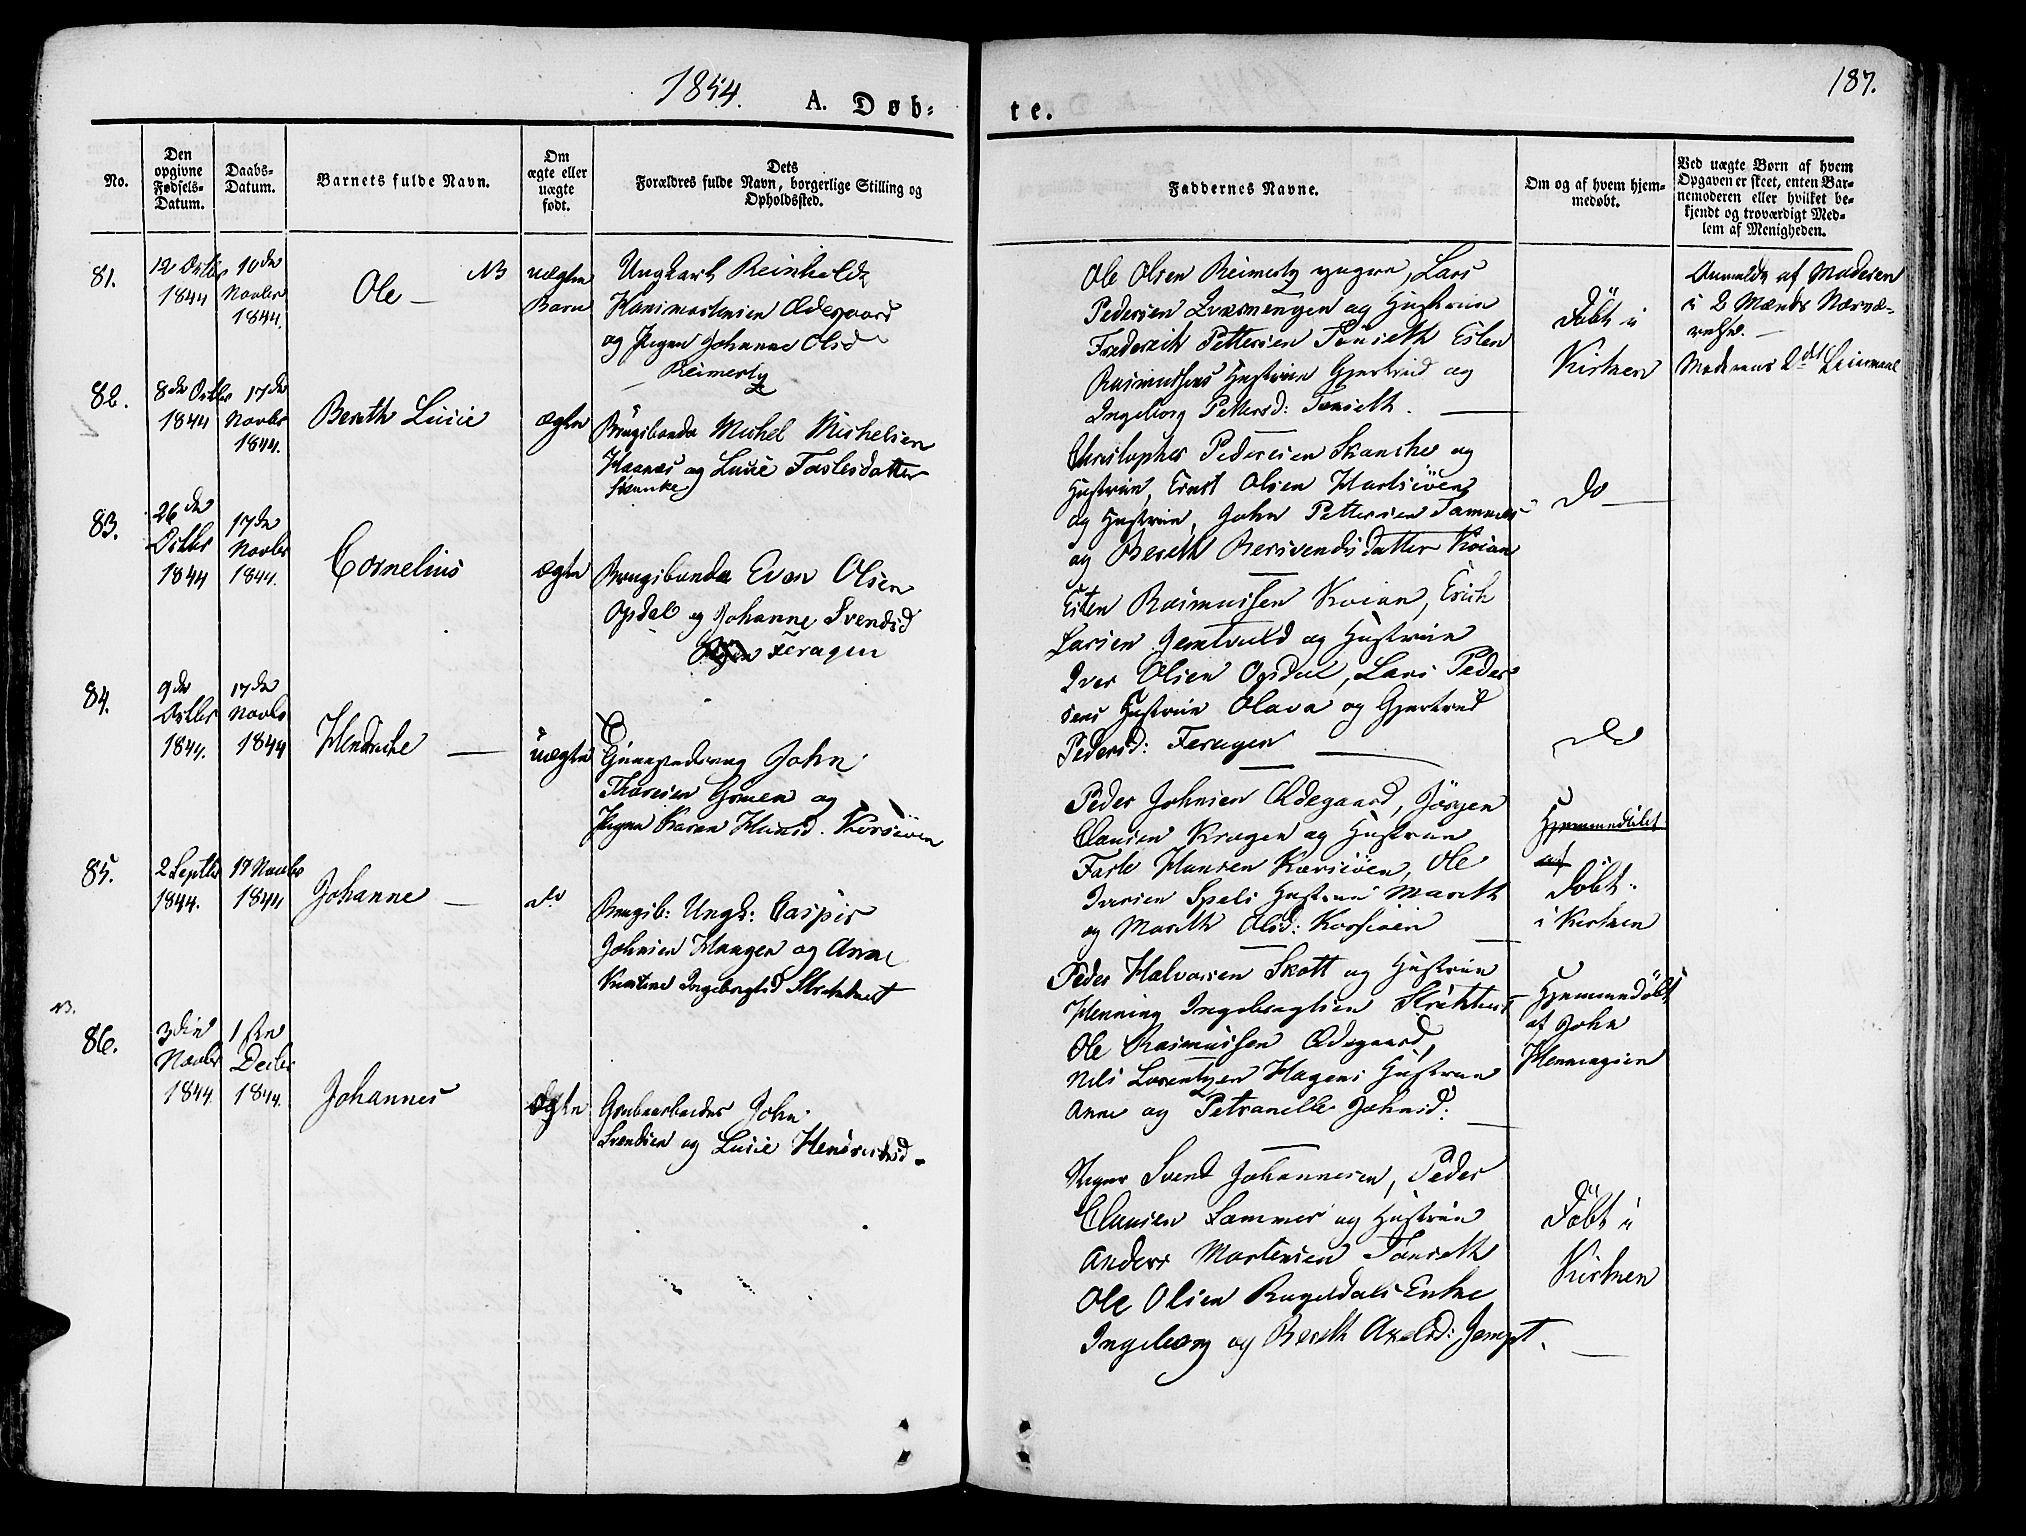 1844. A. Døb-
te. 187.
No.
Den
opgivne
Fødsels-
Datum.
Daabs-
Datum.
Barnets fulde Navn.
Om
ægte eller
uægte
født.
Dets
Forældres fulde Navn, borgerlige Stilling og
Opholdssted.
Faddernes Navne.
Om og af hvem hjem-
medøbt.
Ved uægte Børn af hvem
Opgaven er skeet, enten Bar-
nemoderen eller hvilket be-
kjendt og troværdigt Med-
lem af Menigheden.
81.
12 Octbr
1844
10de
Novbr
1844.
Ole — NB
uægte
Barn
Ungkarl Reinholdt
Hansmortensen Ødegaard
og Pigen Johanne Olsd
Reimerly
Ole Olsen Reimerly yngre, Lars
Pedersen og Hustrue
Frederich Pettersen Tønseth Esten
Rasmussens Hustrue Gjertrud og
Ingeborg Pettersd: Tønseth. —
Døbt i
Kirken
Anmeldt af Moderen
i 2 Mænds Nærvæ-
relse. —
Moderens 2det Leiermaal
82.
8de Octbr
1844
17de
Novbr
1844.
Bereth Lucie
ægte
Brugsbonde Michel Michelsen
Haanæs og Lucie Taslesdatter
Skancke
Christopher Pedersen Skancke og
Hustrue, Ernst Olsen Hartsiøen
og Hustrue, John Pettersen Tamnes
og Bereth Bersvendsdatter Koian
Do —
83.
26de
Octbr
1844
17de
Novbr
1844.
Cornelius
ægte
Brugsbonde Even Olsen
Opdal og Johanne Svendsd
Feragen
Esten Rasmussen Koian, Erich
Larsen Jemtvold og Hustrue
Iver Olsen Opdal, Lars Peder-
sens Hustrue Olava og Gjertrud
Pedersd: Feragen —
Do
84.
9de
Octbr
1844.
17de
Novbr
1844
Hendriche —
uægte
John
Thoresen Gruen og
Pigen Karen Hansd. Korsiøen
Peder Johnsen Ødegaard, Jørgen
Clausen Kragen og Hustrue
Tarle Hansen Korsiøen, Ole
Iversen Spels Hustrue Mareth
og Mareth Olsd: Korsiøen —
Hjemmedøbt
af
Døbt
i Kirken
85.
2 Septbr
1844.
17 Novbr
1844
Johanne —
do
Brugsb: Ungk: Casper
Johnsen Haugen og Anne
Kirstine Ingebrigtsd Strickert
Peder Halvorsen Skott og Hustrue
Henning Ingebrigtsen Strickert
Ole Rasmussen Ødegaard,
Nils Lorentzen Hagens Hustrue
Anne og Petranelle Johnsd: —
Hjemmedøbt
af John
Henningsen
NB.
86.
3die
Novbr
1844.
1ste
Decbr
1844.
Johannes
ægte
Grubearbeider John
Svendsen og Lucie Hendrichsd
Svend Johannesen, Peder
Clausen Lammer og Hustrue
Anders Mortensen Tønseth
Ole Olsen Rugeldals Enke
Ingeborg og Bereth Axelsd: Jempt. —
Døbt i
Kirken